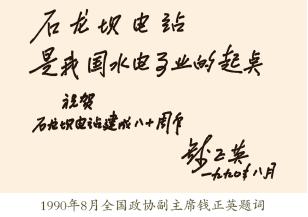 石龙坝电站
是我国水电事业的起点
祝贺
石龙坝电站建成八十周年
钱正英
一九九〇年八月
1990年8月全国政协副主席钱正英题词